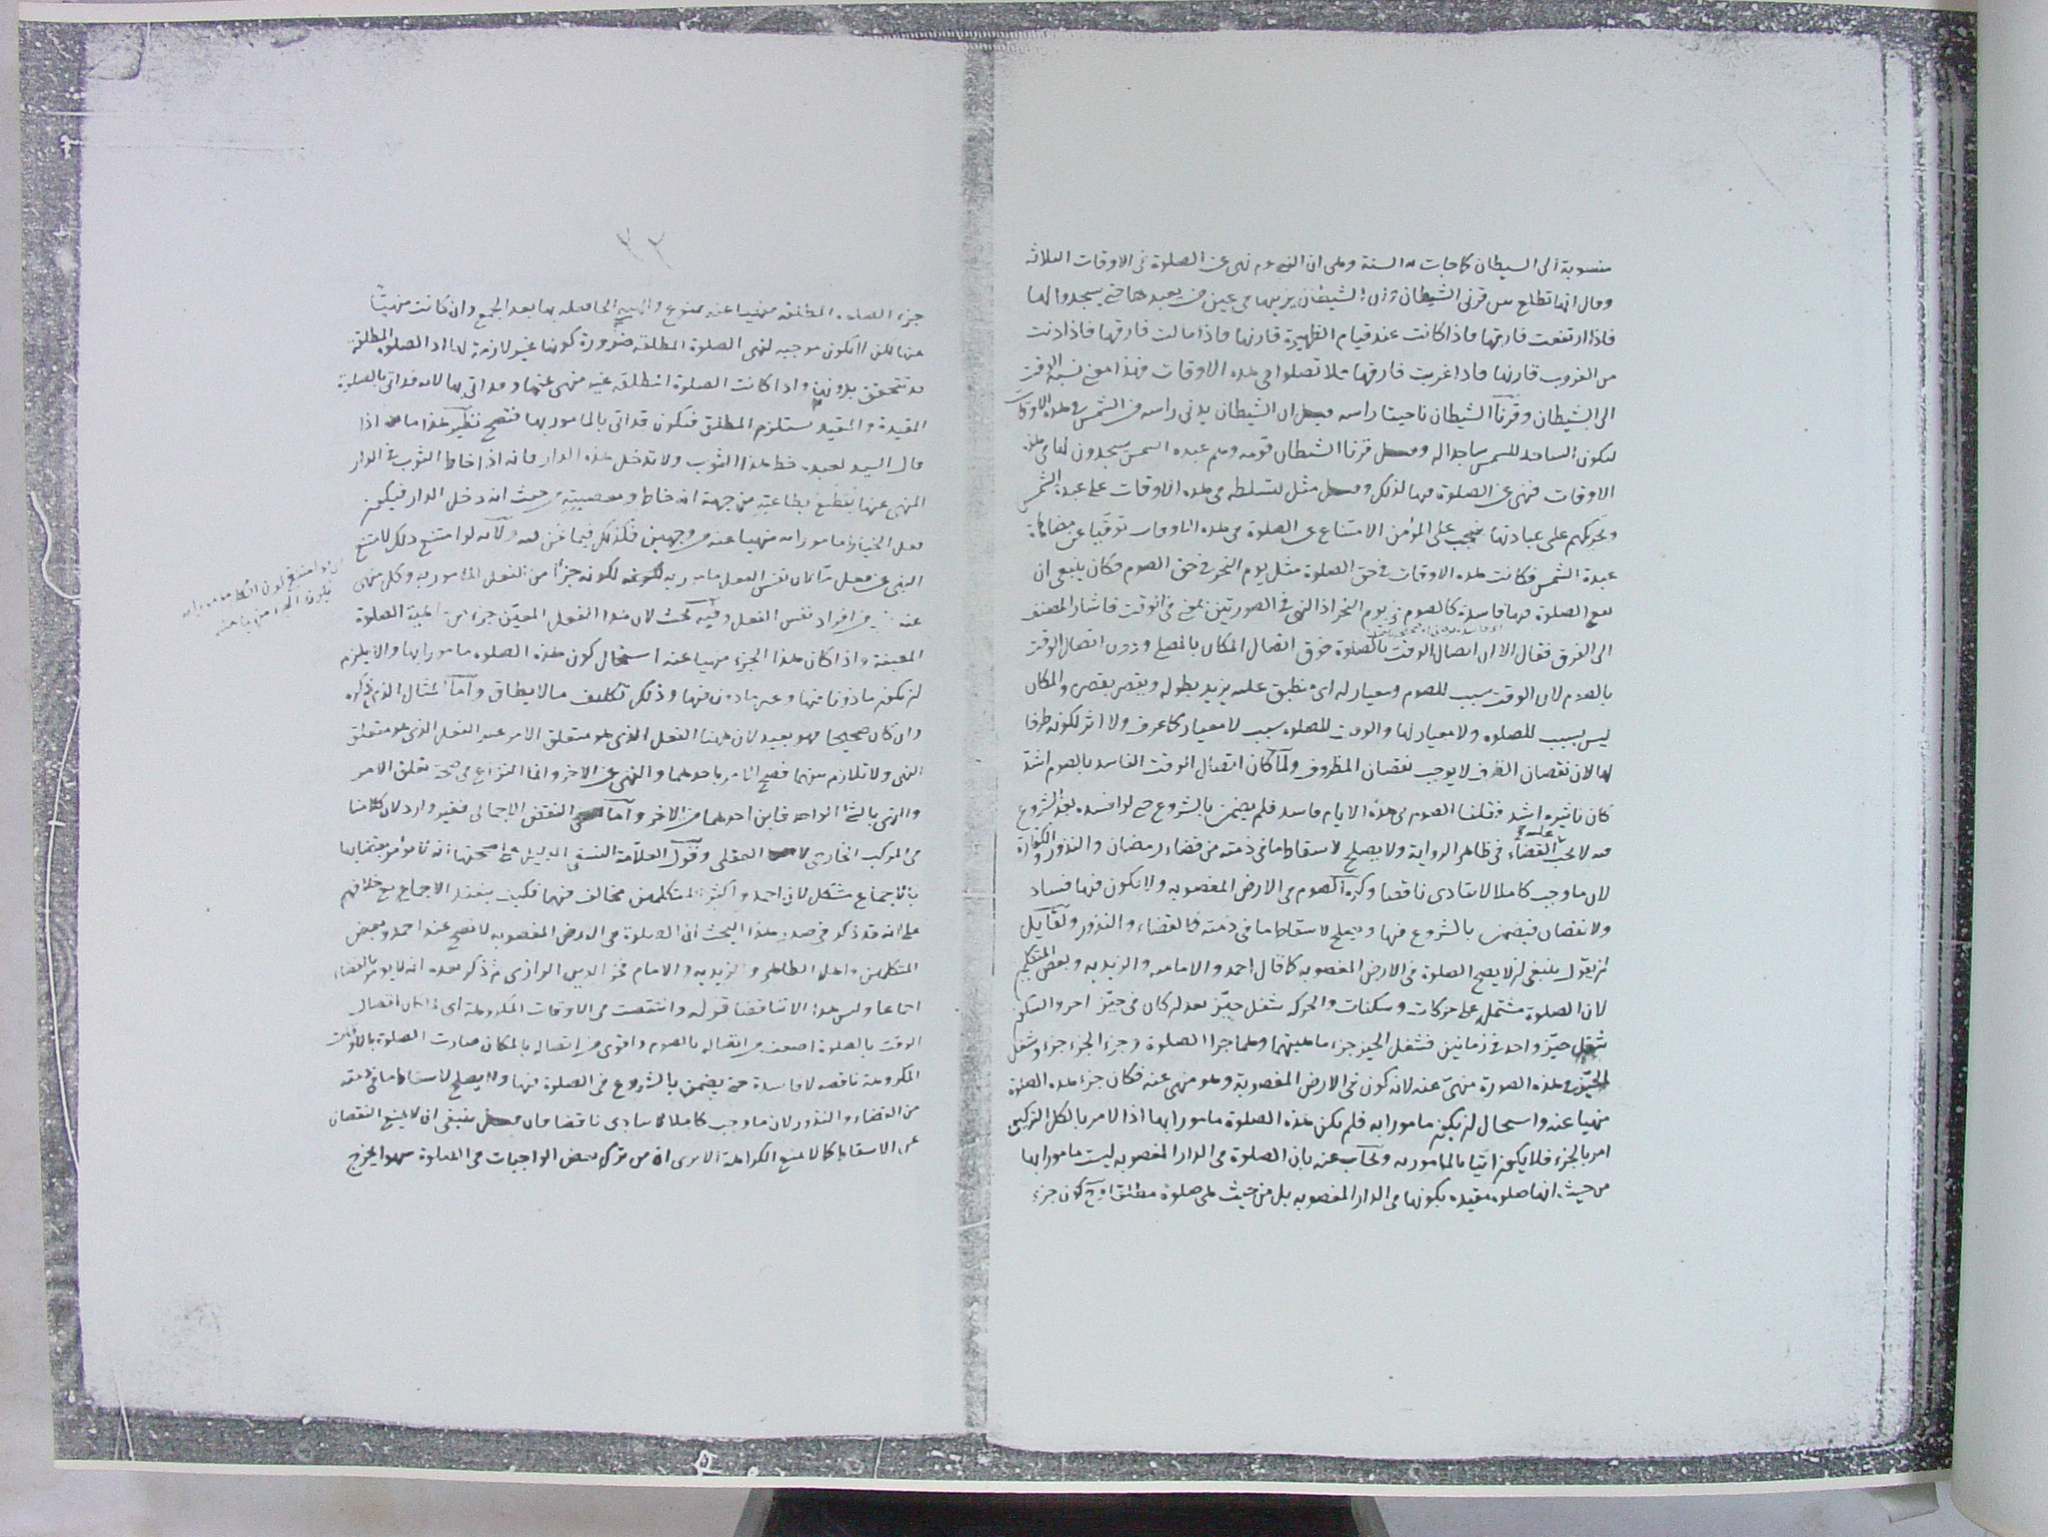 منسوبة الى الشيطان كما جاءت به السنة وهى ان النبى عم نهى عن الصلوة فى الاوقات الثلاثة
وقال انها تطلع بين قرنى الشيطان وان الشيطان يزينها فى عين من يعبدها حتى يسجدوا لها
فاذا ارتفعت فارقها فاذا كانت عند قيام الظهيرة قارنها فاذا مالت فارقها فاذا دنت
من الغروب قارنها فاذا غربت فارقها فلا تصلوا فى هذه الاوقات فهذا معنى نسبة الوقت
الى الشيطان وقرنا الشيطان ناحيتا راسه وقيل ان الشيطان يدنى راسه من الشمس فى هذه الاوقات
ليكون الساجد للشمس ساجدا له وقيل قرنا الشيطان قومه وهم عبدة الشمس يسجدون لها فى هذه
الاوقات فنهى عن الصلوة فيها لذلك وقيل مثل لتسلطه فى هذه الاوقات على عبدة الشمس
وتحريكهم على عبادتها فيجب على المؤمن الامتناع عن الصلوة فى هذه الاوقات توقيا عن مضاهاة
عبدة الشمس فكانت هذه الاوقات فى حق الصلوة مثل يوم النحر فى حق الصوم فكان ينبغى ان
يقع الصلوة فيها فاسدة كالصوم فى يوم النحر اذ النهى فى الصورتين لمعنى فى الوقت فاشار المصنف
الى الفرق فقال الا ان اتصال الوقت بالصلوة فوق اتصال المكان بالمصلى ودون اتصال الوقت
بالصوم لان الوقت سبب للصوم ومعيار له اى منطبق عليه يزيد بطوله وينقص بقصره والمكان
ليس بسبب للصلوة ولا معيار لها والوقت للصلوة سبب لا معيار كما عرف ولا اثر لكونه ظرفا
لها لان نقصان الظرف لا يوجب نقصان المظروف ولما كان اتصال الوقت الفاسد بالصوم اشد
كان تاثيره اشد فقلنا الصوم فى هذه الايام فاسد فلم يضمن بالشروع حتى لو افسده بعد الشروع
فيه لا يجب عليه القضاء فى ظاهر الرواية ولا يصلح لاسقاط ما فى ذمته من قضاء رمضان والنذور والكفارة
لان ما وجب كاملا لا يتادى ناقصا وكره الصوم فى الارض المغصوبة ولا يكون فيها فساد
ولا نقصان فيضمن بالشروع فيها ويصلح لاسقاط ما فى ذمته كالقضاء والنذور ولقائل
ان يقول ينبغى ان لا يصح الصلوة فى الارض المغصوبة كما قال احمد والامامية والزيدية وبعض المتكلمين
لان الصلوة مشتملة على حركات وسكنات والحركة شغل حيز بعد ان كان فى حيز اخر والسكون
شغل حيز واحد فى زمانين فشغل الحيز جزء ماهيتهما وهما جزآ الصلوة وجزء الجزء جزء وشغل
الحيز فى هذه الصورة منهى عنه لانه كون فى الارض المغصوبة وهو منهى عنه فكان جزء هذه الصلوة
منهيا عنه واستحال ان يكون مامورا به فلم يكن هذه الصلوة مامورا بها اذا الامر بالكل التركيبى
امر بالجزء فلا يكون اتيا بالمامور به ويجاب عنه بان الصلوة فى الدار المغصوبة ليست مامورا بها
من حيث انها صلوة مقيدة بكونها فى الدار المغصوبة بل من حيث هى صلوة مطلقا وح كون جزء
٢٢
جزء الصلوة المطلقة منهيا عنه ممنوع والهيئة الحاصلة بها بعد الجمع وان كانت منهيا
عنها لكن لا يكون موجبة لنهى الصلوة المطلقة ضرورة كونها غير لازمة لها اذ الصلوة المطلقة
قد تتحقق بدونها واذا كانت الصلوة المطلقة غير منهى عنها وقد اتى بها لانه قد اتى بالصلوة
المقيدة والمقيد يستلزم المطلق فيكون قد اتى بالمامور بها فتصح نظير هذا ما اذا
قال السيد لعبده خط هذا الثوب ولا تدخل هذه الدار فانه اذا خاط الثوب فى الدار
المنهى عنها يقطع بطاعته من جهة انه خاط ومعصيته من حيث انه دخل الدار فيكون
فعل الخياط مامورا به منهيا عنه من وجهين فكذلك فيما نحن فيه ولانه لو امتنع ذلك لامتنع
النهى عن فعل ما لان نفس الفعل مامور به لكونه جزءا من الفعل المامور به وكل منهى
عنه فرد من افراد نفس الفعل وفيه بحث لان هذا الفعل المعين جزء من ماهية الصلوة
المعينة واذا كان هذا الجزء منهيا عنه استحال كون هذه الصلوة مامورا بها والا يلزم
ان تكون ماذونا فيها وغير ماذون فيها وذلك تكليف ما لا يطاق واما المثال الذى ذكره
وان كان صحيحا فهو بعيد لان ههنا الفعل الذى هو متعلق الامر غير الفعل الذى هو متعلق
النهى ولا تلازم بينهما فصح الامر باحدهما والنهى عن الاخر وانما النزاع فى صحة تعلق الامر
والنهى بالشئ الواحد فاين احدهما من الاخر واما النقض الاجمالى فغير وارد لان كلامنا
فى المركب الخارجى لا العقلى وقول العلامة النسفى الدليل على صحتها انه لا يؤمر بقضائها
بالاجماع مشكل لان احمد واكثر المتكلمين مخالف فيها فكيف ينعقد الاجماع مع خلافهم
على انه قد ذكر فى صدر هذا البحث ان الصلوة فى الارض المغصوبة لا تصح عند احمد وبعض
المتكلمين واهل الظاهر والزيدية والامام فخر الدين الرازى ثم ذكر بعده انه لا يؤمر بالقضاء
اجماعا وليس هذا الا تناقضا قوله وانتقصت فى الاوقات المكروهة اى لما كان اتصال
الوقت بالصلوة اضعف من اتصاله بالصوم واقوى من اتصاله بالمكان صارت الصلوة بالاوقات
المكروهة ناقصة لا فاسدة حتى يضمن بالشروع فى الصلوة فيها ولا يصلح لاسقاط ما فى ذمته
من القضاء والنذور لان ما وجب كاملا لا يتادى ناقصا فان قيل ينبغى ان لا يمنع النقصان
عن الاسقاط كما لا يمنع الكراهة الا يرى ان من ترك بعض الواجبات فى الصلوة سهوا يخرج